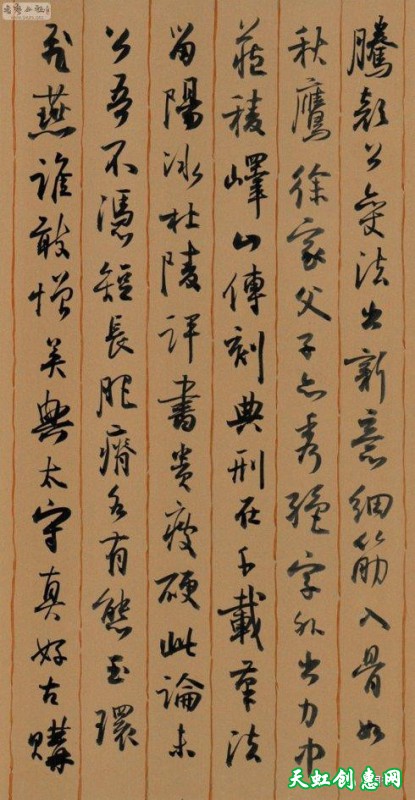 騰顏公變法出新意細筋入骨如
秋鷹徐家父子亦秀絕字外出力中
藏稜嶧山傳刻典刑在千載筆法
留陽冰杜陵評書貴瘦硬此論未
公吾不憑短長肥瘠各有態玉環
飛燕誰敢憎吳興太守真好古購
天虹创惠网